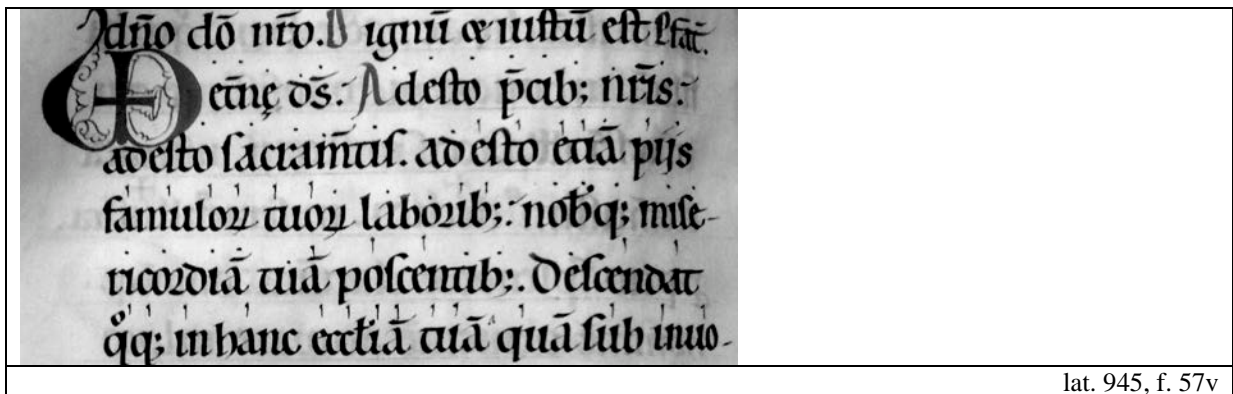 dn̄o dō nr̄o. D ignū & iustū est p̄fat̄.
et̄nę ds̄. Adesto p̄cib; nr̄is.
adesto sacram̄tis. adesto etiā pijs
famuloꝝ tuoꝝ laborib; nob̄q; mise-
ricordiā tuā poscentib;. Descendat
qͦq; in hanc eccl̄iā tuā quā sub inuo-
lat. 945, f. 57v